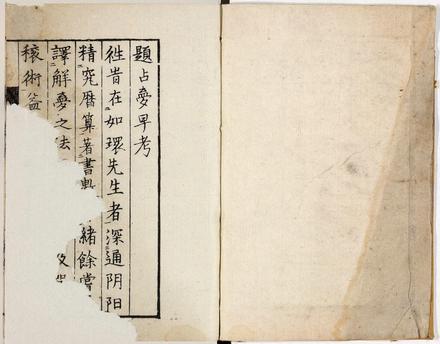 題占夢早考
徃昔在如環先生者深通阴阳
精究暦算著書
緒餘嘗
譯解夢之法
禳術